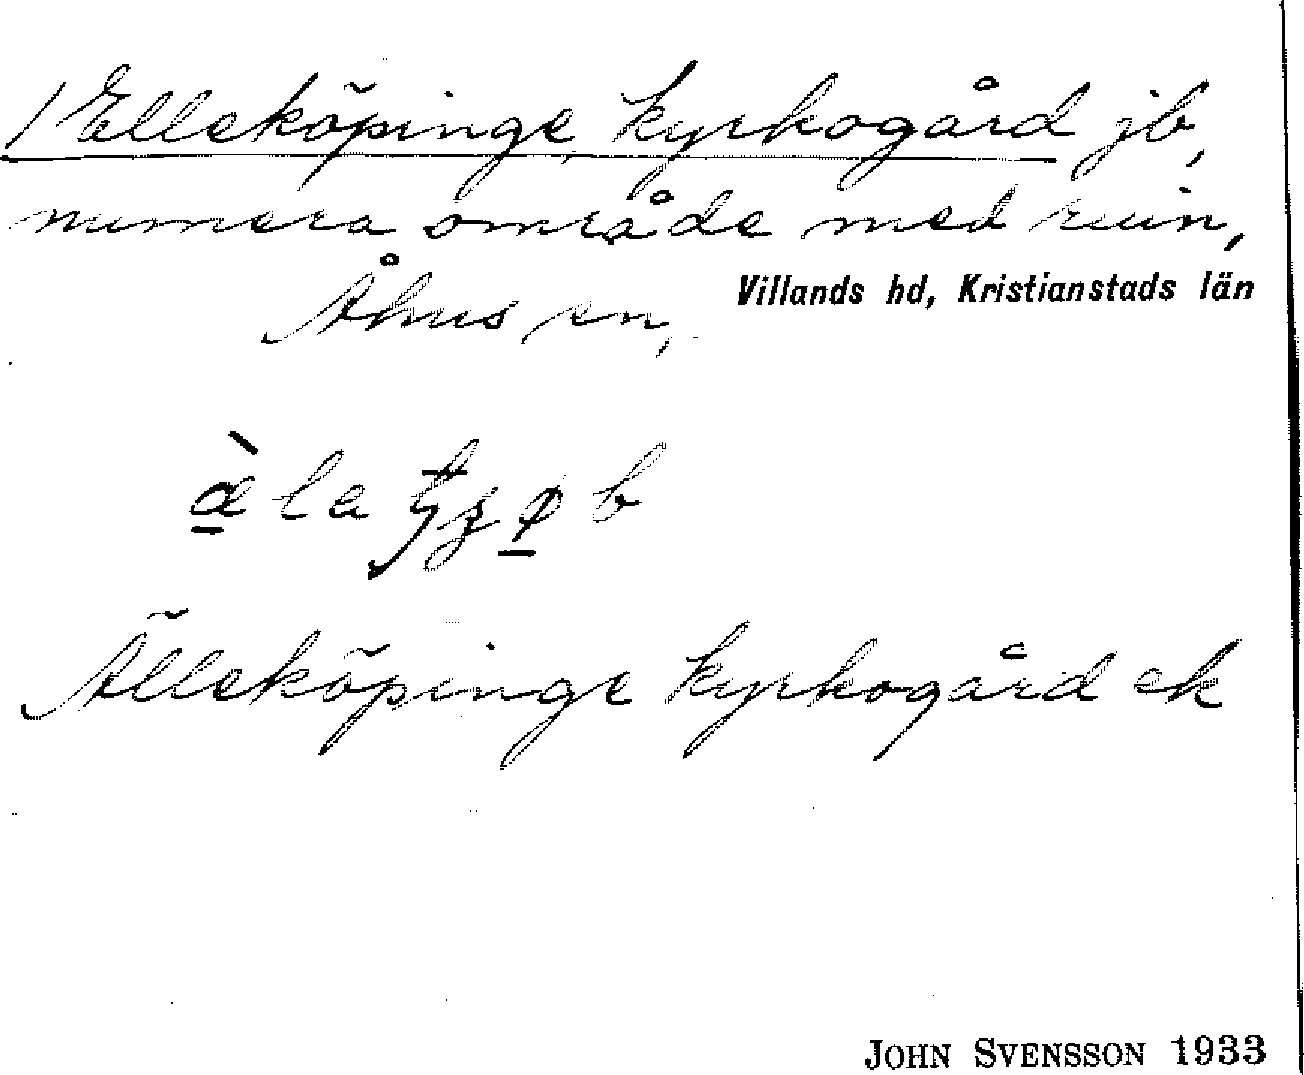 / Elleköpinge kyrkogård jb,
numera område med ruin,
Åhus sn, Villands hd, Kristianstads län
Älleköpinge kyrkogård ek
JOHN SVENSSON 1933